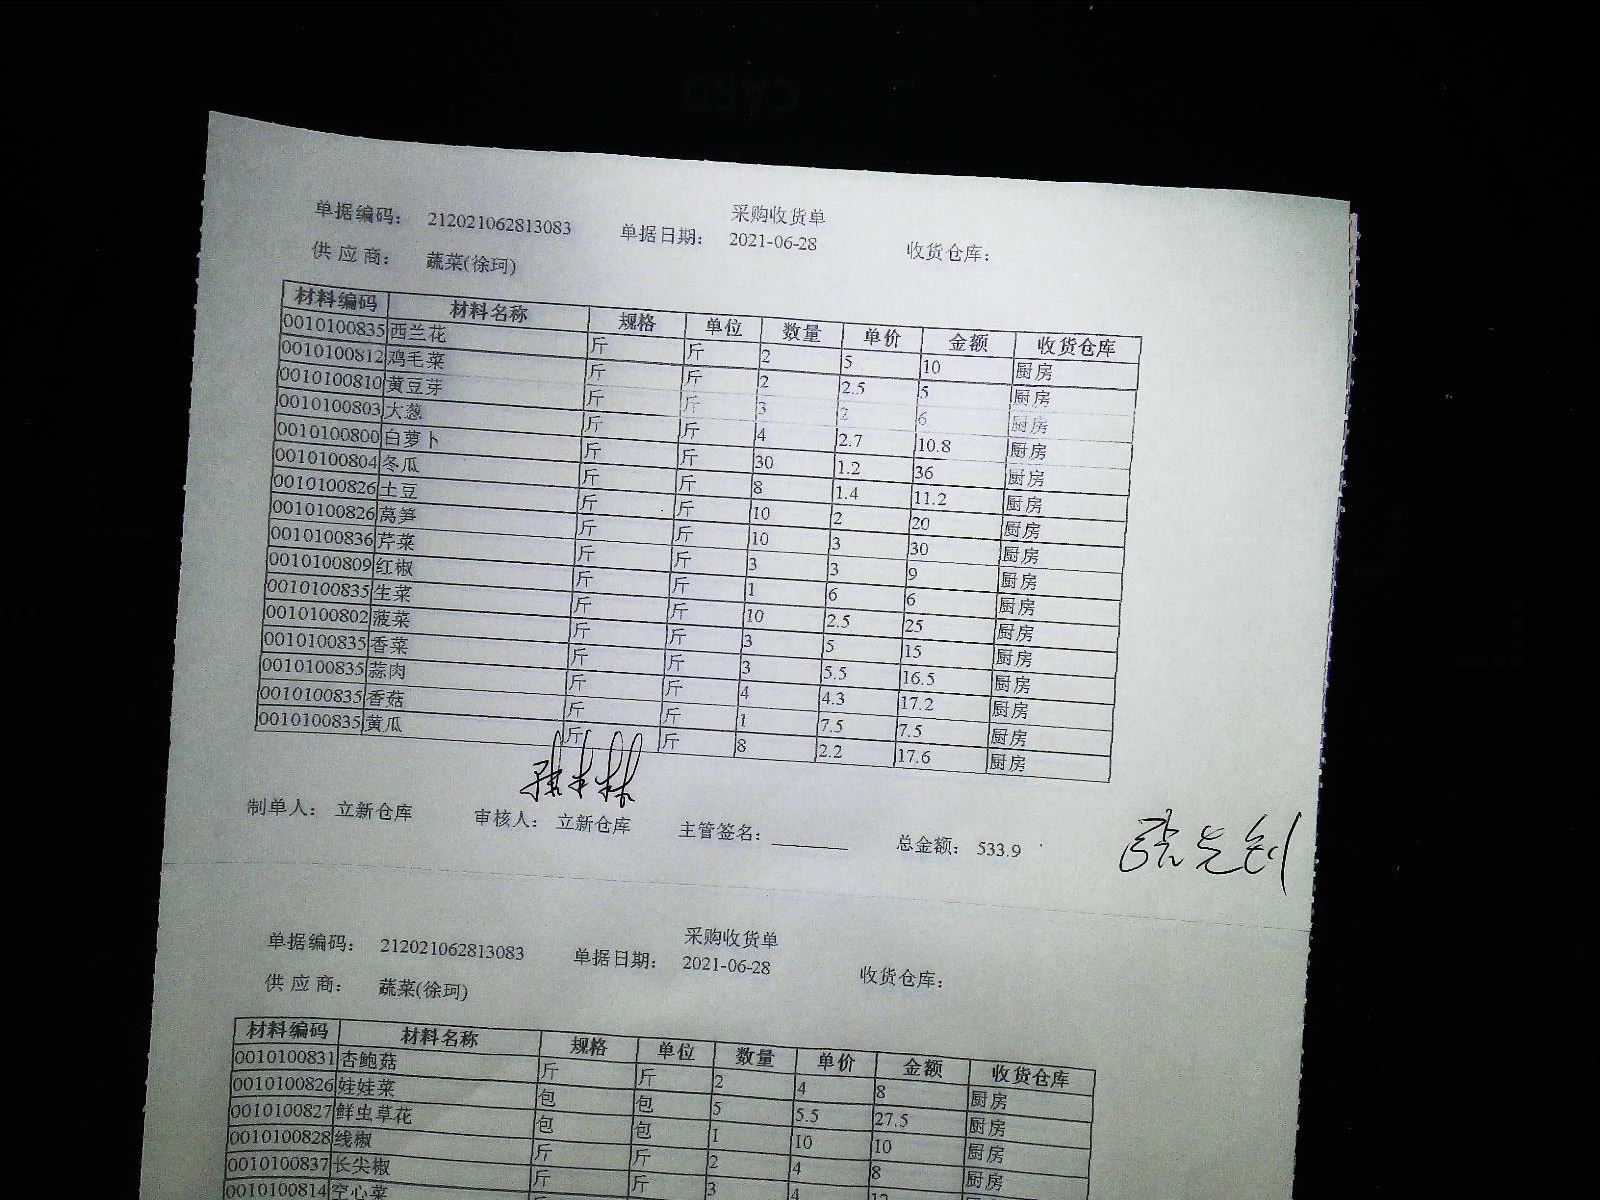 CARD
采购收货单
单据编码: 212021062813083 单据日期: 2021-06-28 收货仓库:
供应商: 蔬菜(徐珂)
材料编码 材料名称 规格 单位 数量 单价 金额 收货仓库
0010100835 西兰花 斤 斤 2 5 10 厨房
0010100812 鸡毛菜 斤 斤 2 2.5 5 厨房
0010100810 黄豆芽 斤 斤 3 2 6 厨房
0010100803 大葱 斤 斤 4 2.7 10.8 厨房
0010100800 白萝卜 斤 斤 30 1.2 36 厨房
0010100804 冬瓜 斤 斤 8 1.4 11.2 厨房
0010100826 土豆 斤 斤 10 2 20 厨房
0010100826 莴笋 斤 斤 10 3 30 厨房
0010100836 芹菜 斤 斤 3 3 9 厨房
0010100809 红椒 斤 斤 1 6 6 厨房
0010100835 生菜 斤 斤 10 2.5 25 厨房
0010100802 菠菜 斤 斤 3 5 15 厨房
0010100835 香菜 斤 斤 3 5.5 16.5 厨房
0010100835 蒜肉 斤 斤 4 4.3 17.2 厨房
0010100835 香菇 斤 斤 1 7.5 7.5 厨房
0010100835 黄瓜 斤 斤 8 2.2 17.6 厨房
制单人: 立新仓库 审核人: 立新仓库 主管签名: 总金额: 533.9
采购收货单
单据编码: 212021062813083 单据日期: 2021-06-28 收货仓库:
供应商: 蔬菜(徐珂)
材料编码 材料名称 规格 单位 数量 单价 金额 收货仓库
0010100831 杏鲍菇 斤 斤 2 4 8 厨房
0010100826 娃娃菜 包 包 5 5.5 27.5 厨房
0010100827 鲜虫草花 包 包 1 10 10 厨房
0010100828 线椒 斤 斤 2 4 8 厨房
0010100837 长尖椒 斤 斤 3 4 12
0010100814 空心菜